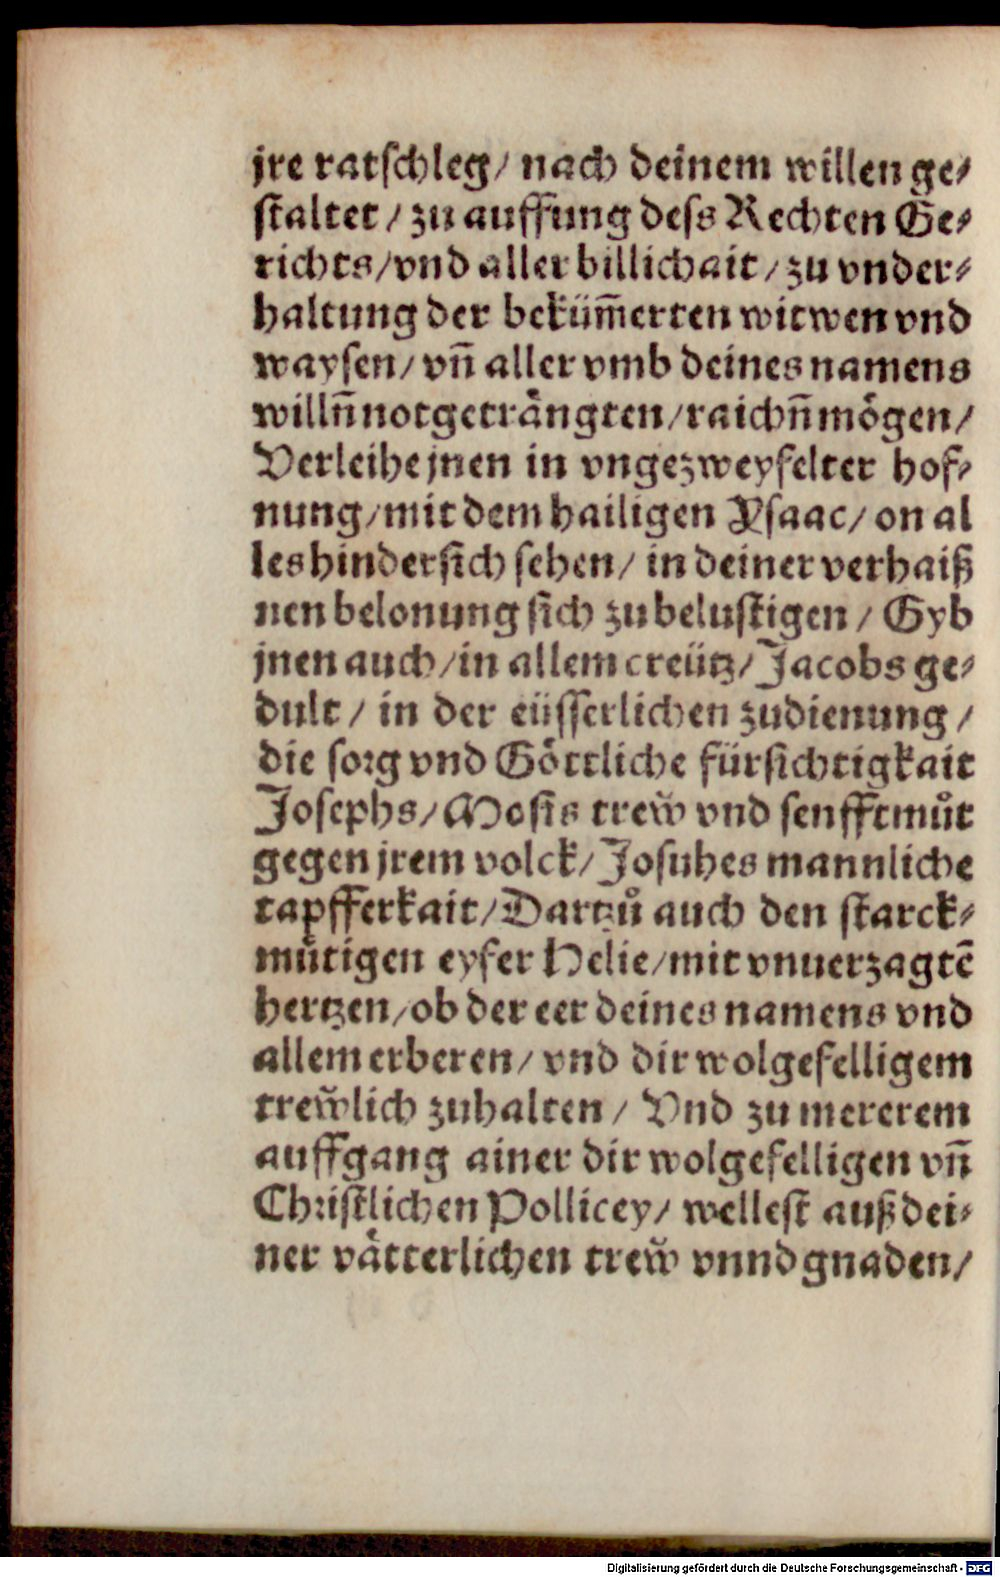 jre ratschleg/ nach deinem willen ge⸗
staltet / zu auffung dess Rechten Ge⸗
richts/vnd aller billichait / zu vnder⸗
haltung der beküm̃erten witwen vnd
waysen/ vñ aller vmb deines namens
willñ notgeträngten/raichñ mögen/
Verleihe jnen in vngezweyfelter hof⸗
nung/mit dem hailigen Ysaac/ on al
les hindersich sehen/ in deiner verhaiß
nen belonung sich zu belustigen / Gyb
jnen auch/in allem creütz/ Jacobs ge⸗
dult / in der eüsserlichen zudienung /
die sorg vnd Göttliche fürsichtigkait
Josephs/ Mosis trew̆ vnd senfftmůt
gegen jrem volck/ Josuhes mannliche
tapfferkait/ Dartzů auch den starck⸗
mütigen eyfer Helie/mit vnuerzagtē
hertzen/ob der eer deines namens vnd
allem erberen/ vnd dir wolgefelligem
trew̆lich zuhalten / Vnd zu mererem
auffgang ainer dir wolgefelligen vñ
Christlichen Pollicey/ wellest auß dei⸗
ner vätterlichen trew̆ vnnd gnaden/
Digitalisierung gefördert durch die Deutsche Forschungsgemeinschaft - DFG